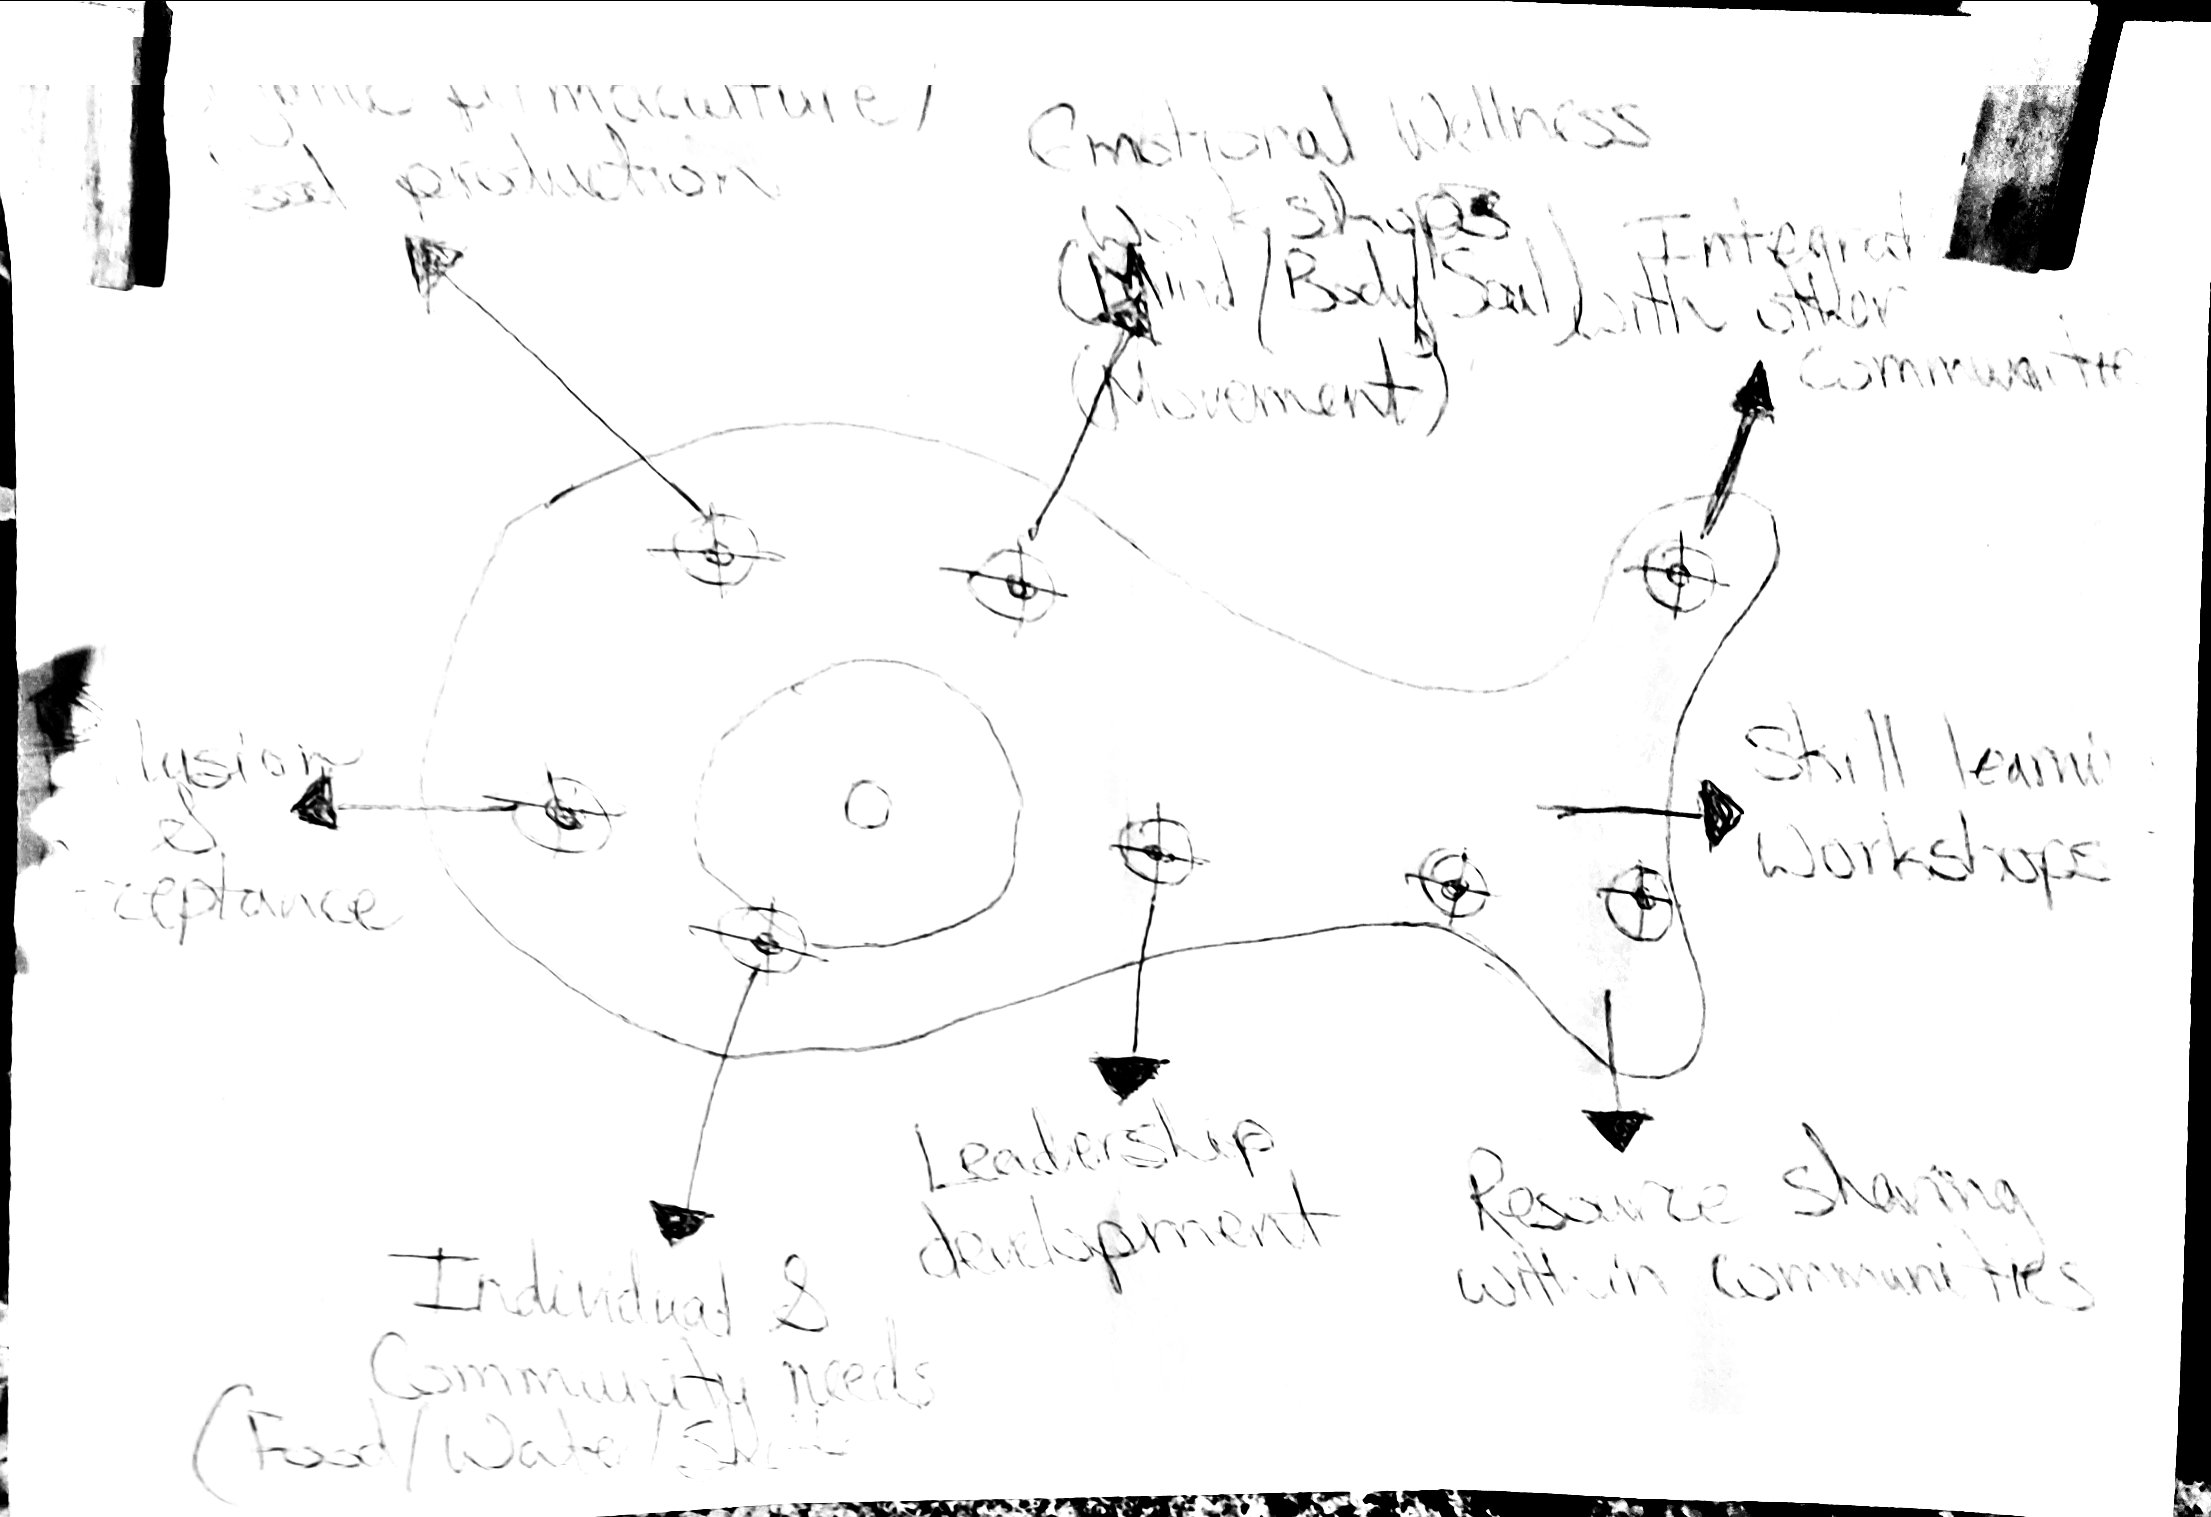 permaculture/
production
Emotional Wellness
Work shops
(Mind/Body/Soul)
(Movement)
with other
Skill
Workshops
&
Leadership
development
Resource sharing
within communities
Individual &
Community needs
(Food/Water/